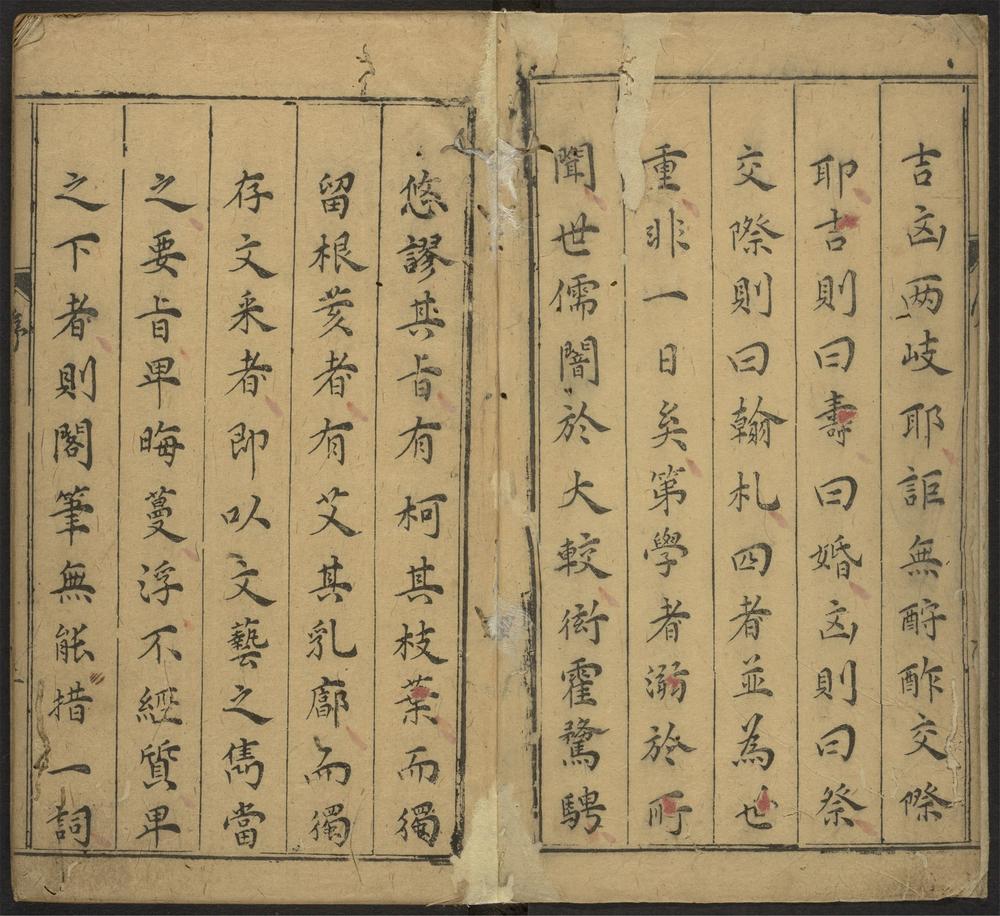 吉凶两岐耶詎無酧酢交際
耶吉則曰壽曰婚凶則曰祭
交際則曰翰札四者並為世
重非一日矣第學者溺於所
聞世儒闇於大較衒霍驁騁
悠謬其旨有柯其枝葉而獨
留根荄者有艾其乳廓而獨
存文釆者即以文藝之雋當
之要旨卑晦蔓浮不經質卑
之下者則閣筆無能措一詞
序